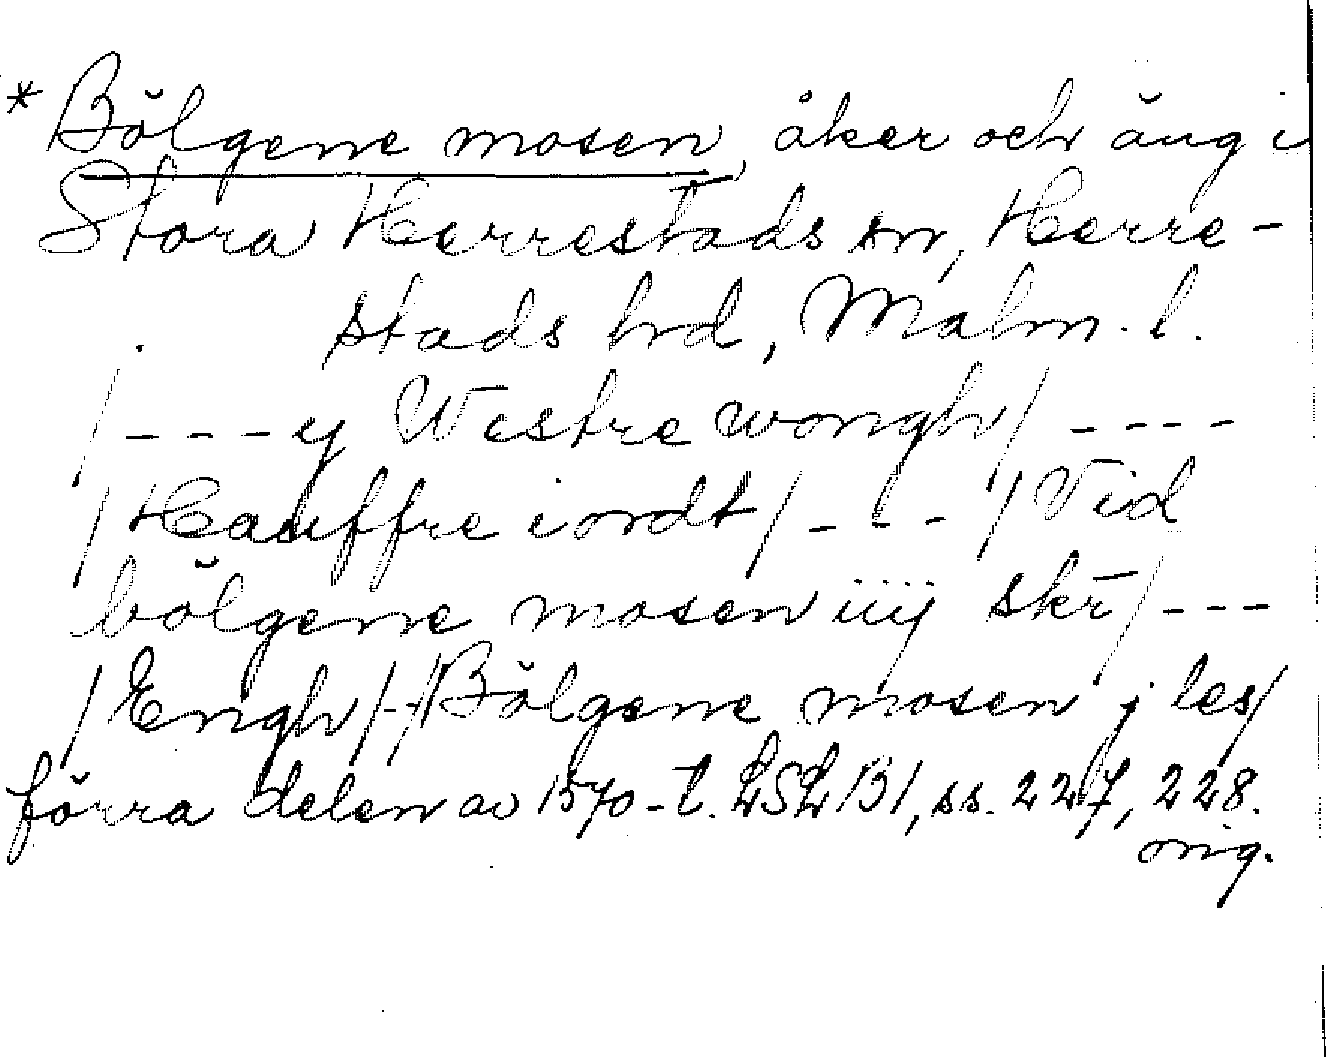 * Bölgene mosen, åker och äng i
Stora Herrestads sn, Herre-
stads hd, Malm. l.
/ - - - y Westre wongh / - - - -
/ Hauffre iordt / - - - / Vid
bölgene mosen iiij skr̄ / - - -
/ Engh / - - / Bölgene mosen j les /
förra delen av 1570-t. LSLB1, ss. 227, 228.
orig.